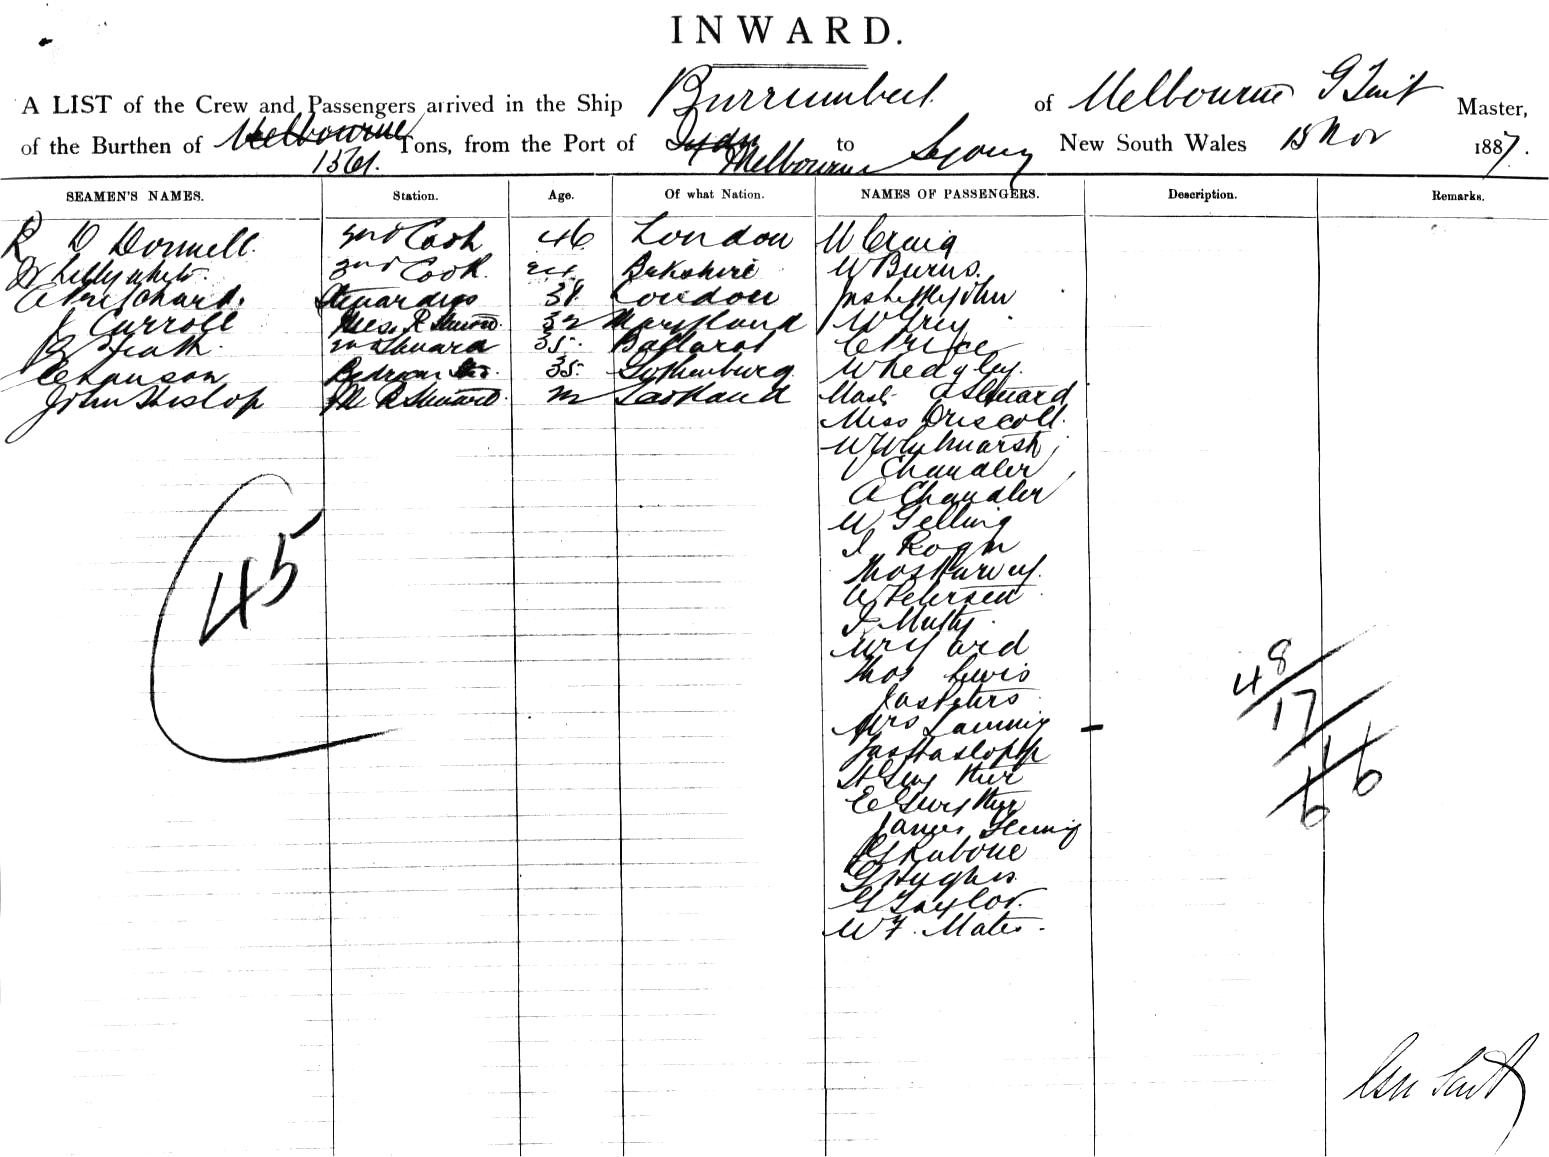 INWARD.
A LIST of the Crew and Passengers arrived in the Ship Burrumbeet of Melbourne G Tait Master,
of the Burthen of Melbourne Tons, from the Port of Sydn to Sydney New South Wales 15 Nov 1887.
1361. Melbourne
SEAMEN'S NAMES. Station. Age. Of what Nation. NAMES OF PASSENGERS. Description. Remarks.
R O Donnell 2nd Cook 46 London W Craig
W Lillywhite 3rd Cook Berkshire W Burns
A Pritchard Stewardess 38 London Jas Littlejohn
J Carroll Mess R Steward 32 Maryland W Grey
Heath 2nd Steward 35 Ballarat C Price
C Hanson Bedroom 35 Gothenburg W Hedgley
John Hislop M R Steward Scotland Mast A Steward
Miss Driscoll
W Whitmarsh
V Chandler
A Chandler
W Gelling
J Roger
Thos Harvey
W Petersen
J Multy
Ward
Thos Lewis
Jas Peters
Mrs Lanning
Jas Haslopp
Gwyther
E Gwyther
James Fleming
Rabone
G Hughes
G Taylor
W F. Mates
45
48
17
1
66
Geo Tait